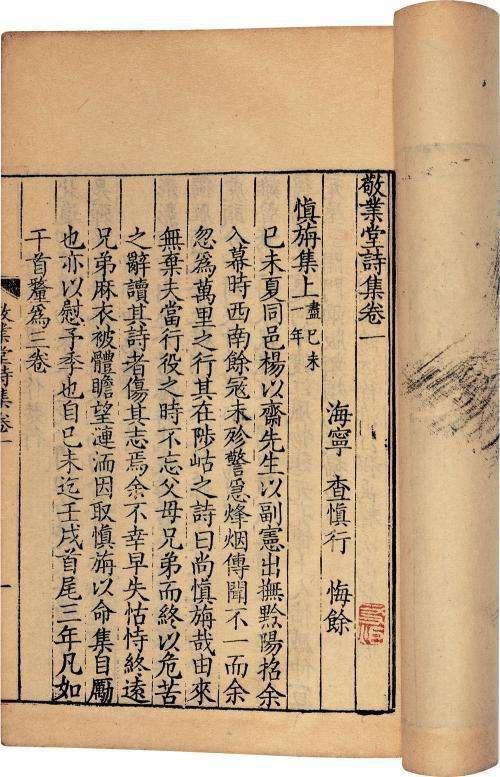 敬業堂詩集卷一
海寧 查慎行 悔餘
慎旃集上盡己未一年
己未夏同邑楊以齋先生以副憲出撫黔陽招余
入幕時西南餘冦未殄警急烽烟傳聞不一而余
忽為萬里之行其在陟岵之詩曰尚慎旃哉由來
無棄夫當行役之時不忘父母兄弟而終以危苦
之辭讀其詩者傷其志焉余不幸早失怙恃終遠
兄弟麻衣被體瞻望漣洏因取慎旃以命集自勵
也亦以慰予季也自己未迄壬戌首尾三年凡如
干首釐為三卷
敬業堂詩集 卷一
一